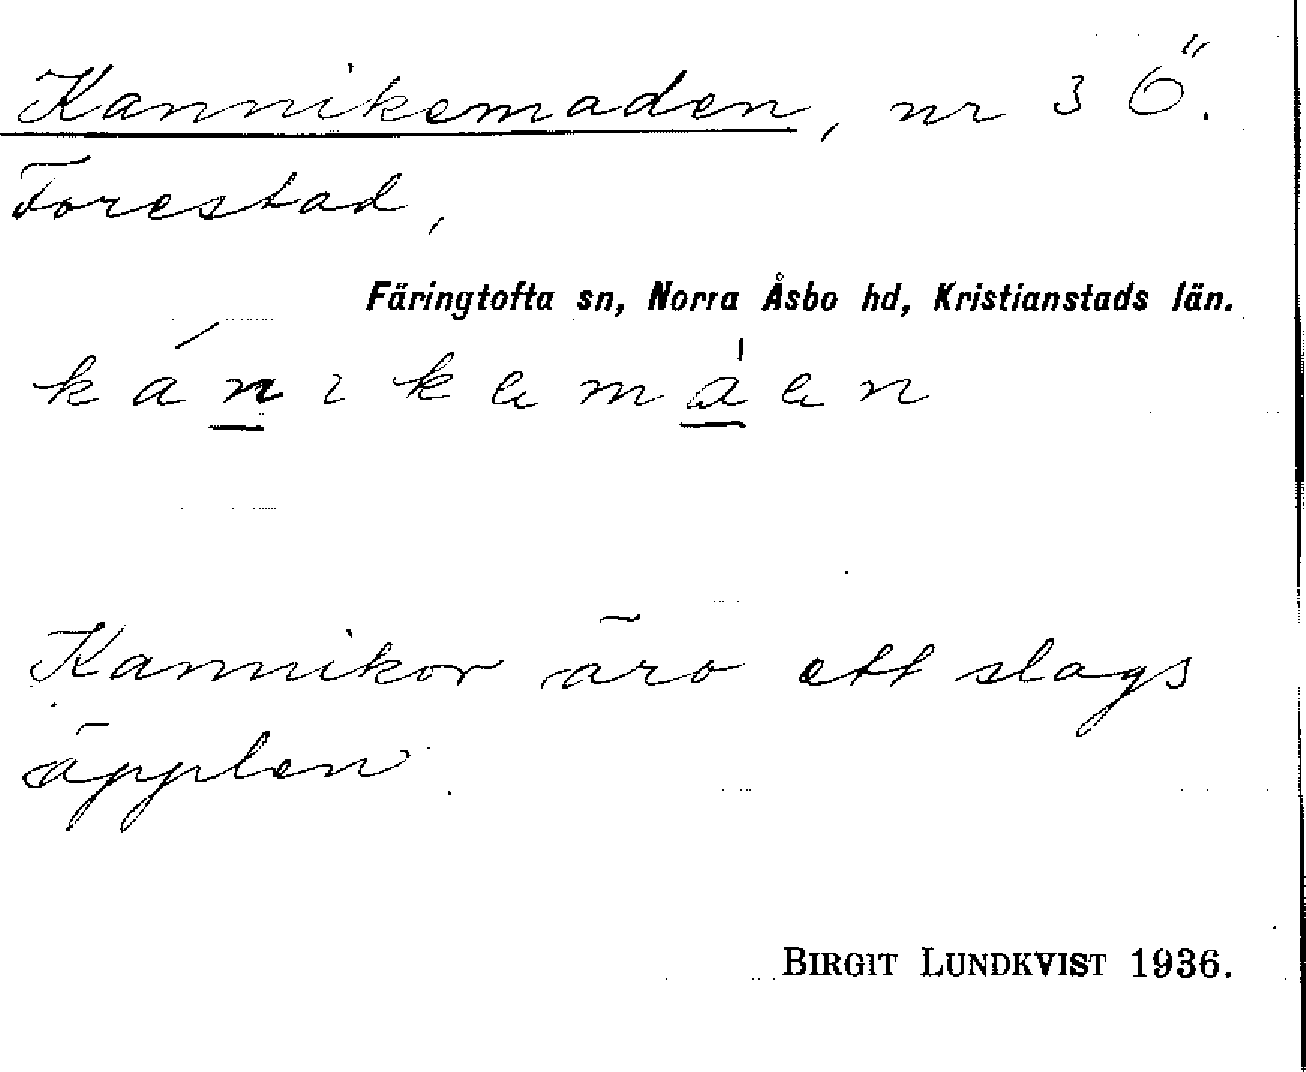 Kannikemaden, nr 3 Ö.
Forestad,
Färingtofta sn, Norra Åsbo hd, Kristianstads län.
kánıkemáen
Kannikor äro ett slags
äpplen.
BIRGIT LUNDKVIST 1936.